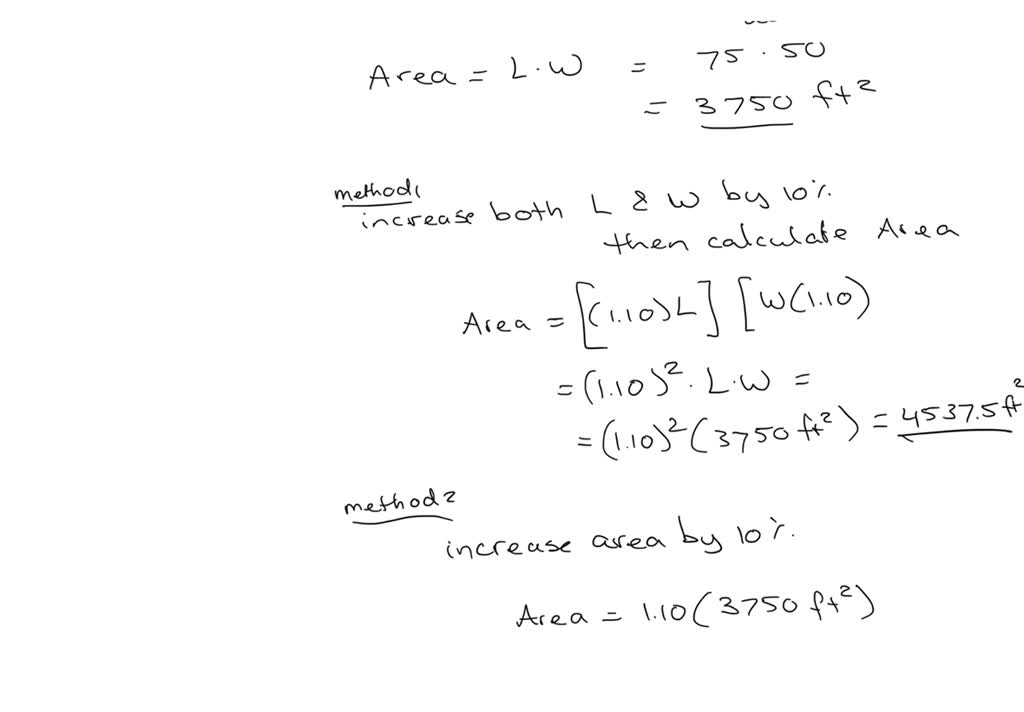 Area = L·W = 75 · 50
= 3750 ft²
method1
increase both L & W by 10%
then calculate Area
Area = [(1.10)L] [W(1.10)
= (1.10)². L·W =
= (1.10)² (3750 ft²) = 4537.5 ft²
method2
increase area by 10%.
Area = 1.10 (3750 ft²)